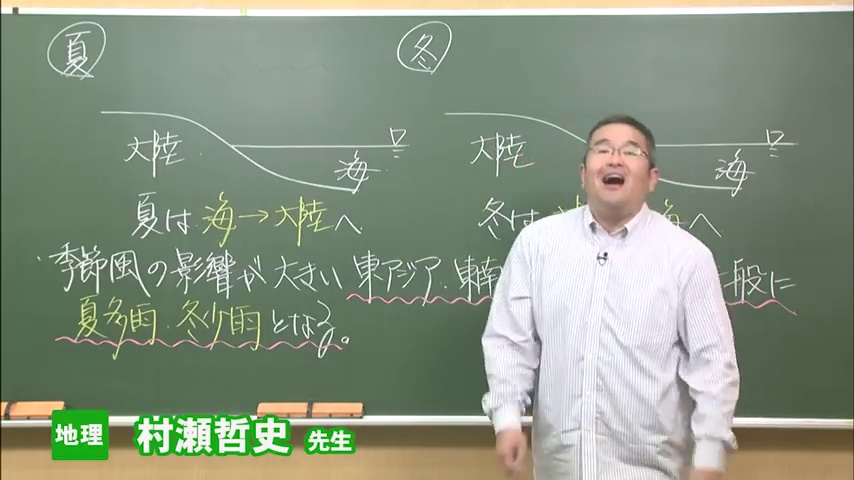 夏
冬
大陸
海
大陸
海
夏は 海→大陸へ
冬は 海へ
・季節風の影響が大きい東アジア・東南 一般に
夏多雨・冬少雨となる。
地理 村瀬哲史 先生